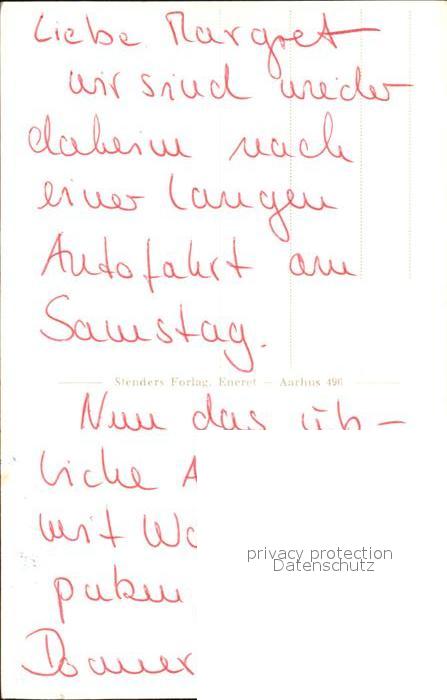 Liebe Margret
wir sind wieder
daheim nach
einer langen
Autofahrt am
Samstag.
Stenders Forlag, Eneret - Aarhus 496
Nun das üb-
liche A
mit Wa
putzen
privacy protection
Datenschutz